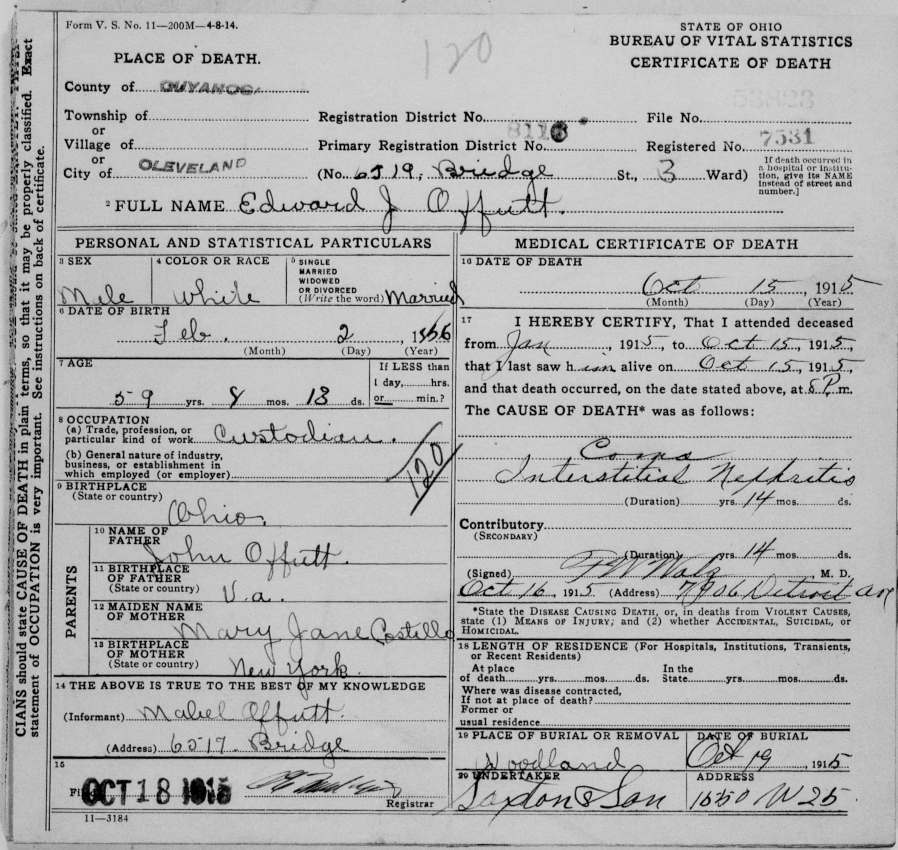 Form V. S. No. 11—200M—4-8-14.
120
STATE OF OHIO
BUREAU OF VITAL STATISTICS
CERTIFICATE OF DEATH
PLACE OF DEATH.
County of CUYAHOGA
Township of
or
Village of
or
City of CLEVELAND
Registration District No.
File No. 53828
Primary Registration District No. 8116
Registered No. 7531
(No. 6519, Bridge St., 3 Ward)
[If death occurred in
a hospital or institu-
tion, give its NAME
instead of street and
number.]
2 FULL NAME Edward J Offutt.
PERSONAL AND STATISTICAL PARTICULARS
3 SEX
Male
4 COLOR OR RACE
White
5 SINGLE
MARRIED
WIDOWED
OR DIVORCED
(Write the word) Married
6 DATE OF BIRTH
Feb. 2, 1856
(Month) (Day) (Year)
7 AGE
59 yrs. 8 mos. 13 ds.
If LESS than
1 day, hrs.
or min.?
8 OCCUPATION
(a) Trade, profession, or
particular kind of work Custodian.
(b) General nature of industry,
business, or establishment in
which employed (or employer)
120
9 BIRTHPLACE
(State or country)
Ohio.
PARENTS
10 NAME OF
FATHER
John Offutt.
11 BIRTHPLACE
OF FATHER
(State or country)
Va.
12 MAIDEN NAME
OF MOTHER
Mary Jane Costillo
13 BIRTHPLACE
OF MOTHER
(State or country)
New York.
14 THE ABOVE IS TRUE TO THE BEST OF MY KNOWLEDGE
(Informant) Mabel Offutt.
(Address) 6517. Bridge
15
OCT 18 1915
Registrar
11—3184
MEDICAL CERTIFICATE OF DEATH
16 DATE OF DEATH
Oct 15, 1915
(Month) (Day) (Year)
17 I HEREBY CERTIFY, That I attended deceased
from Jan, 1915, to Oct 15, 1915,
that I last saw him alive on Oct 15, 1915,
and that death occurred, on the date stated above, at 8 P. m.
The CAUSE OF DEATH* was as follows:
Coma
Interstitial Nephritis
(Duration) yrs. 14 mos. ds.
Contributory
(SECONDARY)
(Duration) yrs. 14 mos. ds.
(Signed) M. D.
Oct 16, 1915 (Address) 7906 Detroit av
*State the DISEASE CAUSING DEATH, or, in deaths from VIOLENT CAUSES,
state (1) MEANS OF INJURY; and (2) whether ACCIDENTAL, SUICIDAL, or
HOMICIDAL.
18 LENGTH OF RESIDENCE (For Hospitals, Institutions, Transients,
or Recent Residents)
At place
of death yrs. mos. ds.
In the
State yrs. mos. ds.
Where was disease contracted,
If not at place of death?
Former or
usual residence
19 PLACE OF BURIAL OR REMOVAL
Woodland
DATE OF BURIAL
Oct 19 1915
20 UNDERTAKER
Saxton & Son
ADDRESS
1550 W 25
CIANS should state CAUSE OF DEATH in plain terms, so that it may be properly classified. Exact
statement of OCCUPATION is very important. See instructions on back of certificate.